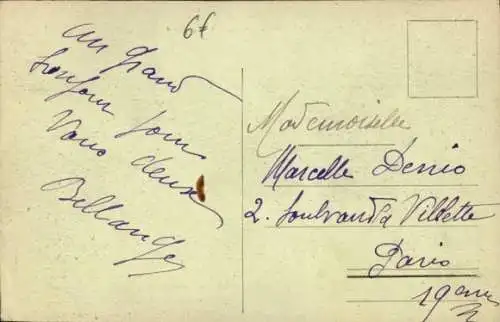 6f
un grand
bonjour pour
Vous deux
Bellanger
Mademoiselle
Marcelle Denis
2. boulevard d la Villette
Paris
19eme